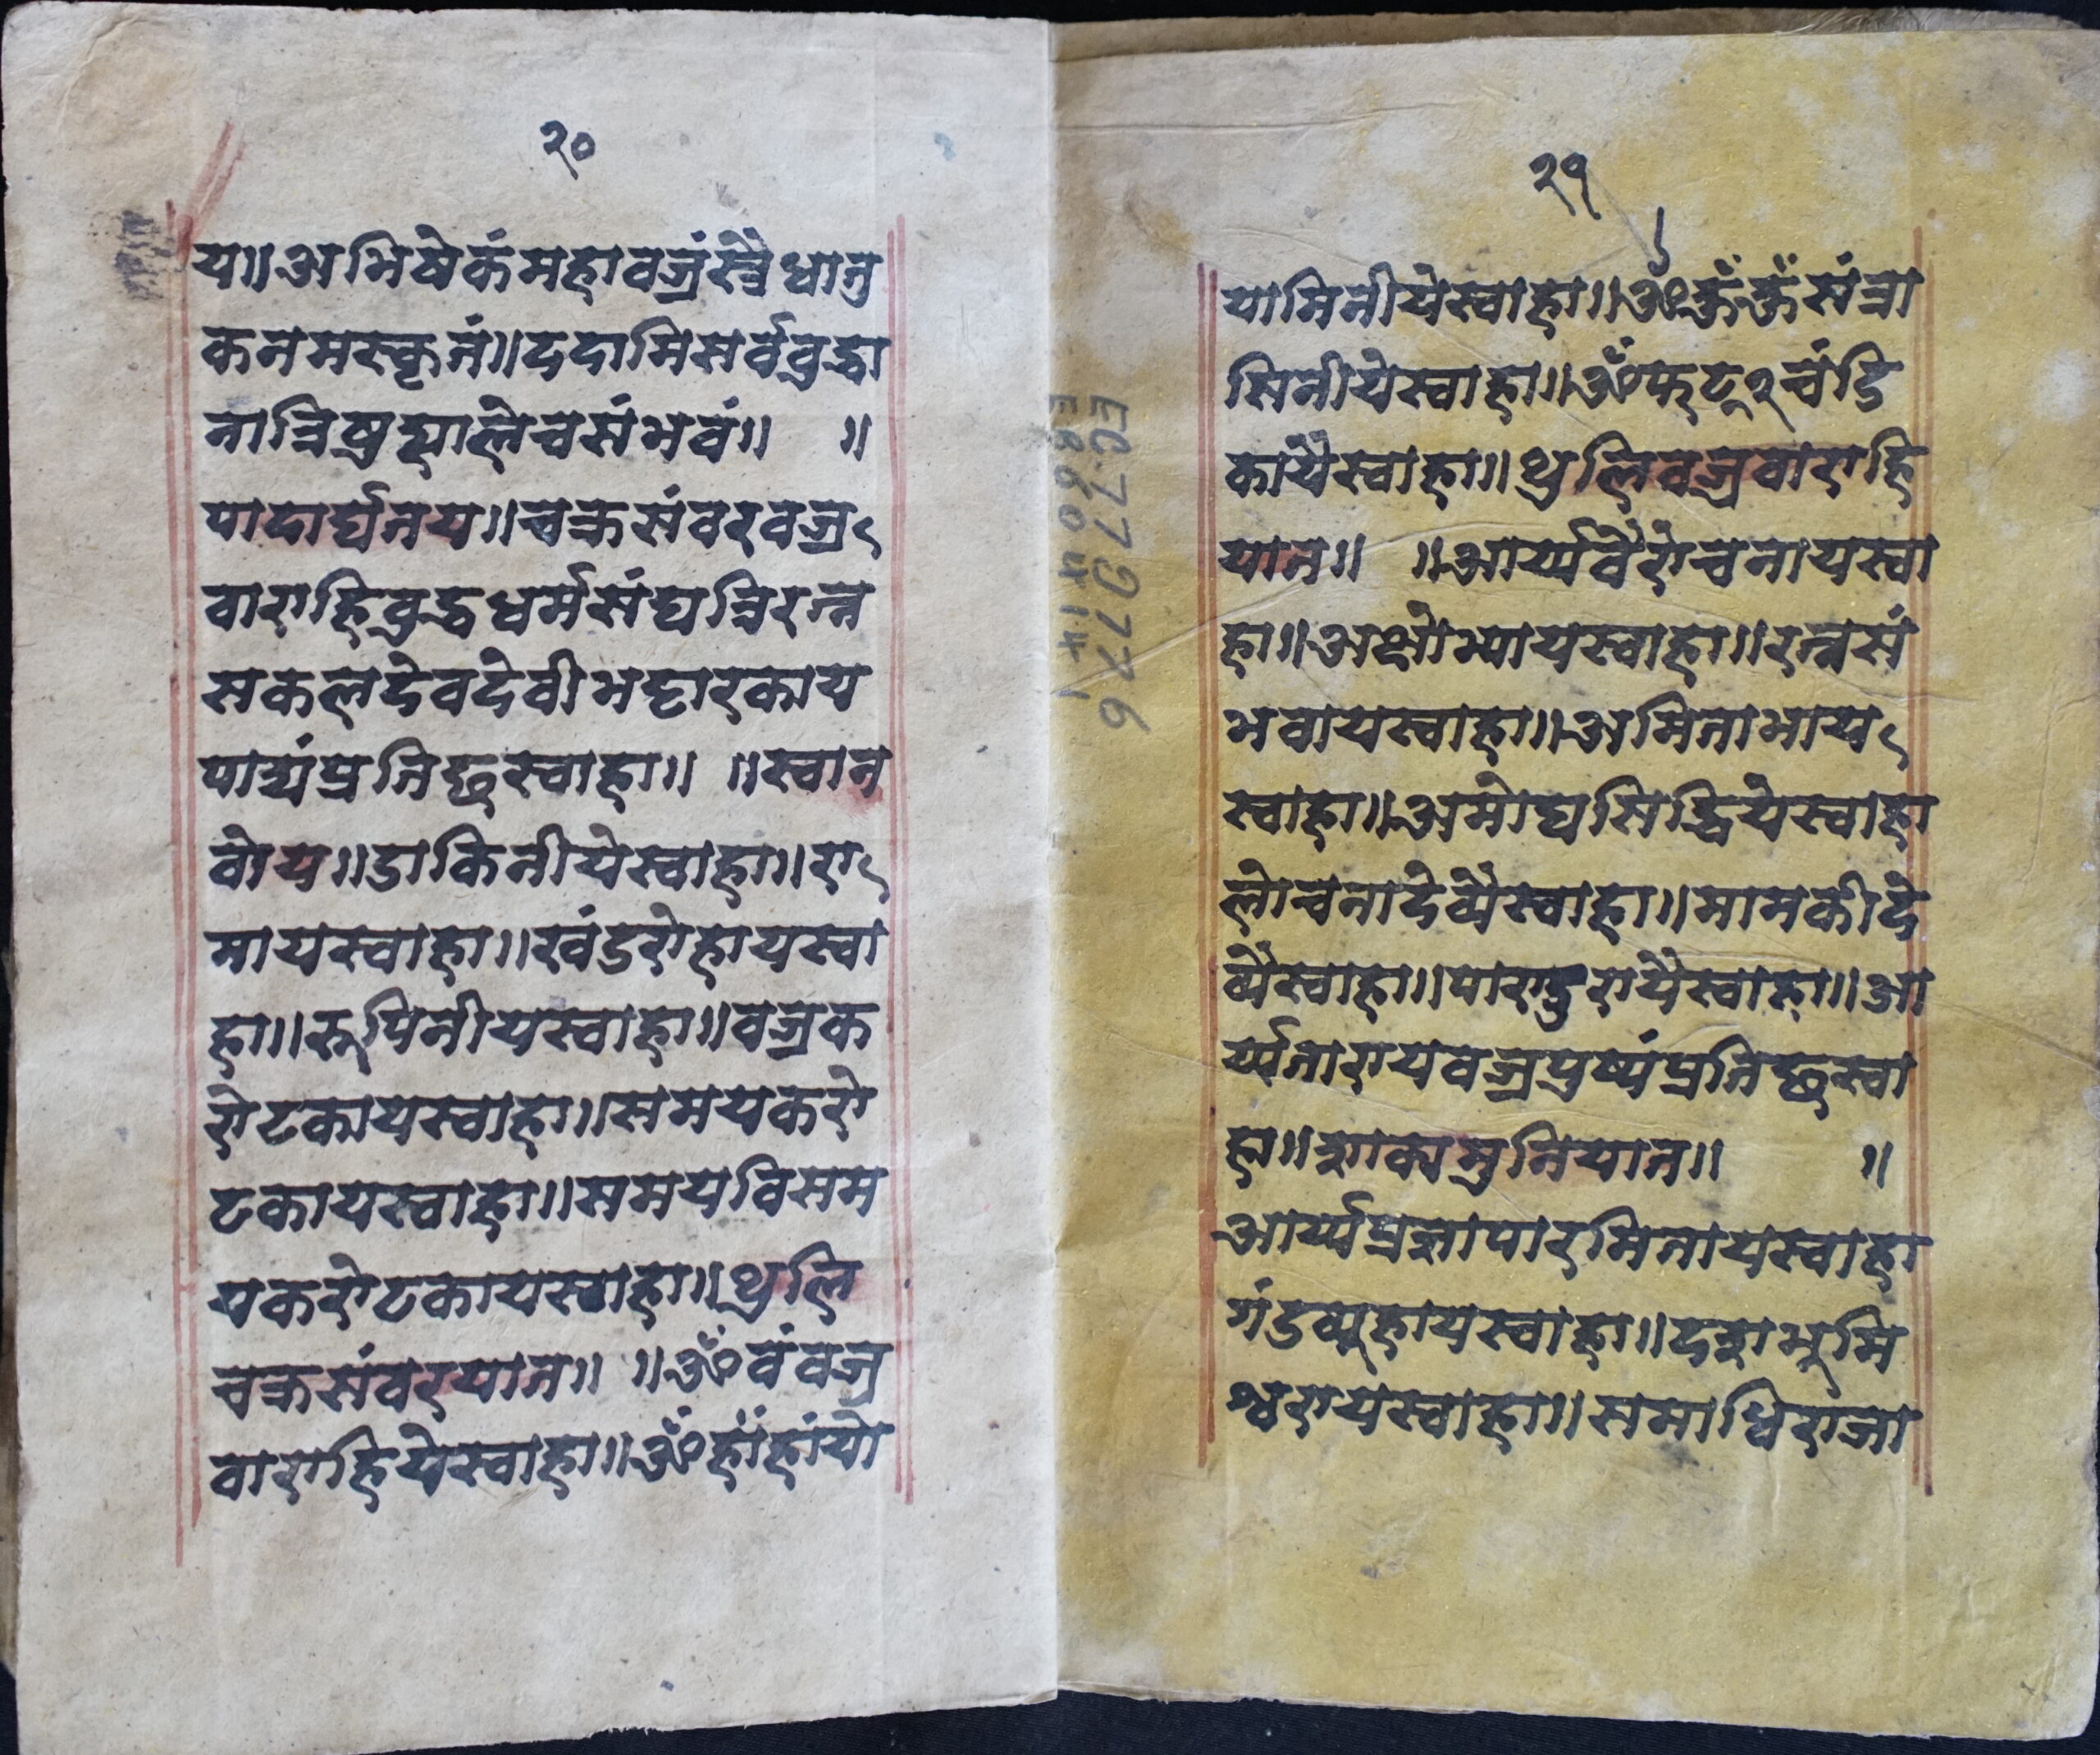 २०
य॥अभिषेकंमहावज्रंस्त्रैधातु
कनमस्कृतं॥ददामिसर्वबुद्धा
नात्रिष्रह्यालेचसंभवं॥ ॥
पादार्घ्यतय॥चक्रसंवरवज्र
वाराहिबुद्धधर्मसंघत्रिरत्न
सकलदेवदेवीभट्टारकाय
पाद्यंप्रतिछस्वाहा॥ ॥स्वान
वोय॥डाकिनीयेस्वाहा॥रा
मायस्वाहा॥खंडरोहायस्वा
हा॥रूपिनीयस्वाहा॥वज्रक
रोटकायस्वाहा॥समयकरो
टकायस्वाहा॥समयविसम
यकरोटकायस्वाहा॥थुलि
चक्रसंवरयात॥ ॥ॐवंवज्र
वाराहियेस्वाहा॥ॐहाँहांयो
२१
यामिनीयेस्वाहा॥ॐसंत्रा
सिनीयेस्वाहा॥ॐफट्२चंडि
कायैस्वाहा॥थुलिवज्रवाराहि
यात॥ ॥आर्य्यवैरोचनायस्वा
हा॥अक्षोभ्यायस्वाहा॥रत्नसं
भवायस्वाहा॥अमिताभाय
स्वाहा॥अमोघसिद्धियेस्वाहा
लोचनादेव्यैस्वाहा॥मामकीदे
व्यैस्वाहा॥पाराडुरायैस्वाहा॥आ
र्य्यतारायवज्रपुष्पंप्रतिछस्वा
हा॥शाक्यमुनियात॥ ॥
आर्य्यप्रज्ञापारमितायस्वाहा
गंडव्यूहायस्वाहा॥दशभूमि
श्वरायस्वाहा॥समाधिराजा
EC.77G776